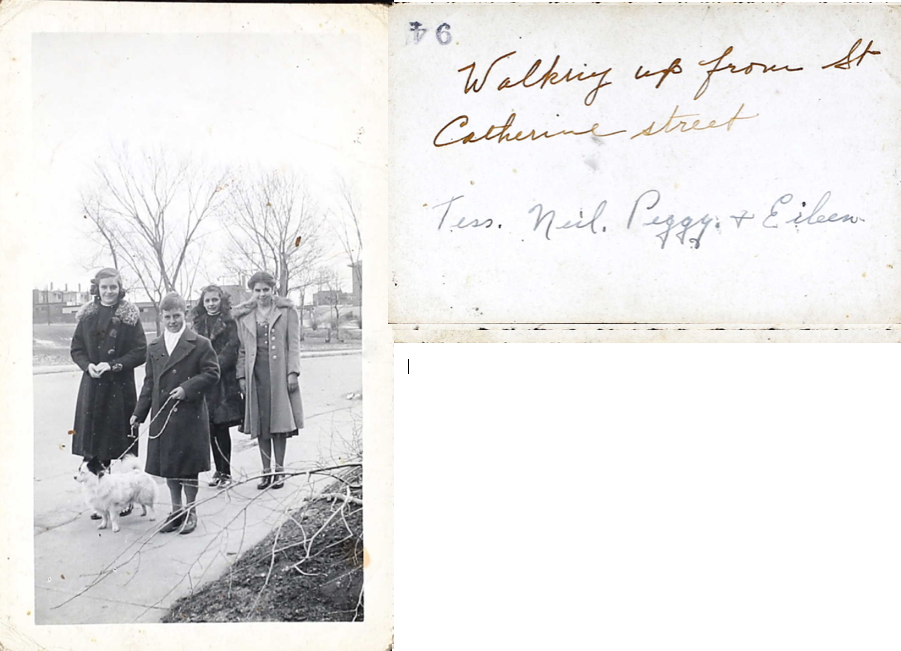 94
Walking up from St
Catherine street
Tess. Neil. Peggy. + Eileen.